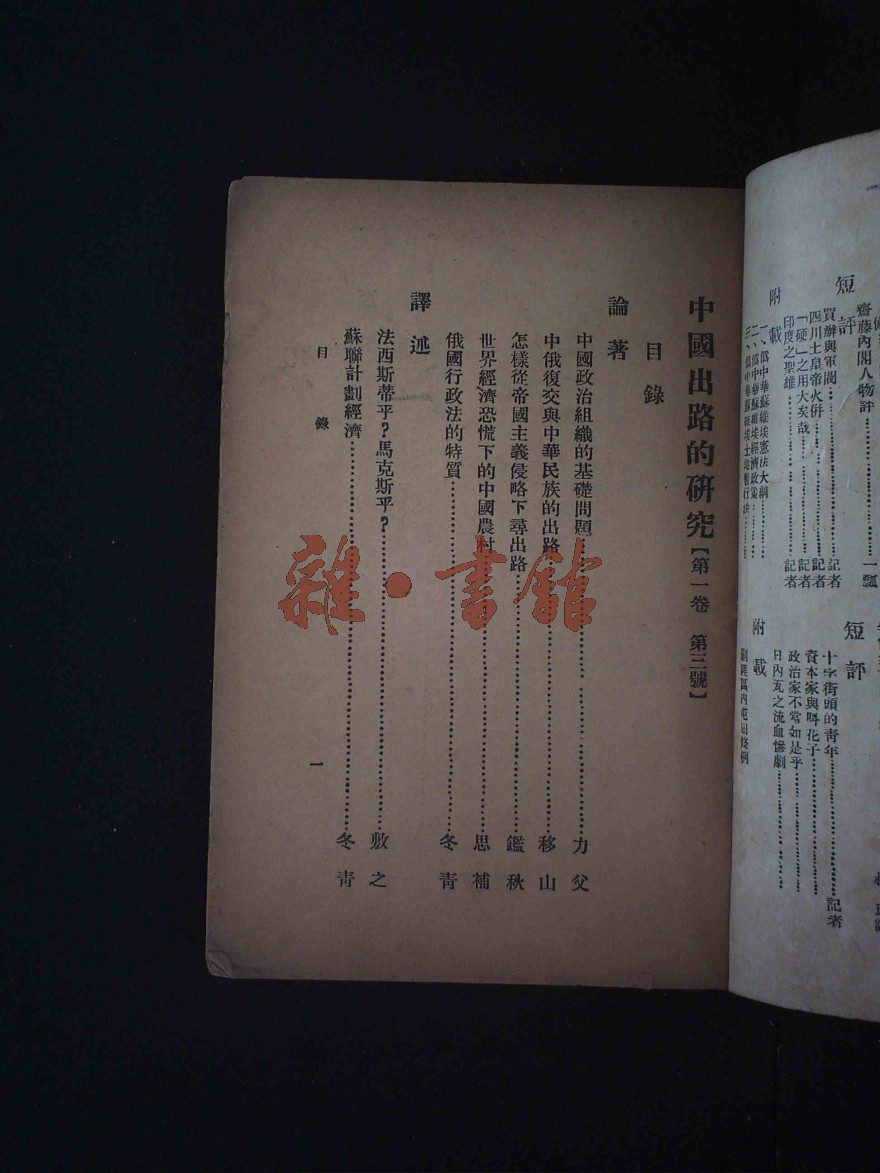 短評
齋藤內閣人物評……一瓢
買辦與軍閥……記者
四川土皇帝火併……記者
「硬」之用大矣哉……記者
印度之聖雄……記者
附載
一、僞中華蘇維埃憲法大綱……
二、僞中華蘇維埃經濟政策……
短評
十字街頭的青年……記者
資本家與呌花子……
政治家不常如是乎……
日內瓦之流血慘劇……
附載
中國出路的研究【第一卷 第三號】
目錄
論著
中國政治組織的基礎問題……力父
中俄復交與中華民族的出路……移山
怎樣從帝國主義侵略下尋出路……鑑秋
世界經濟恐慌下的中國農村……思補
俄國行政法的特質……冬青
譯述
法西斯蒂乎?馬克斯乎?……敷之
蘇聯計劃經濟……冬青
目錄
一
雜·書舘